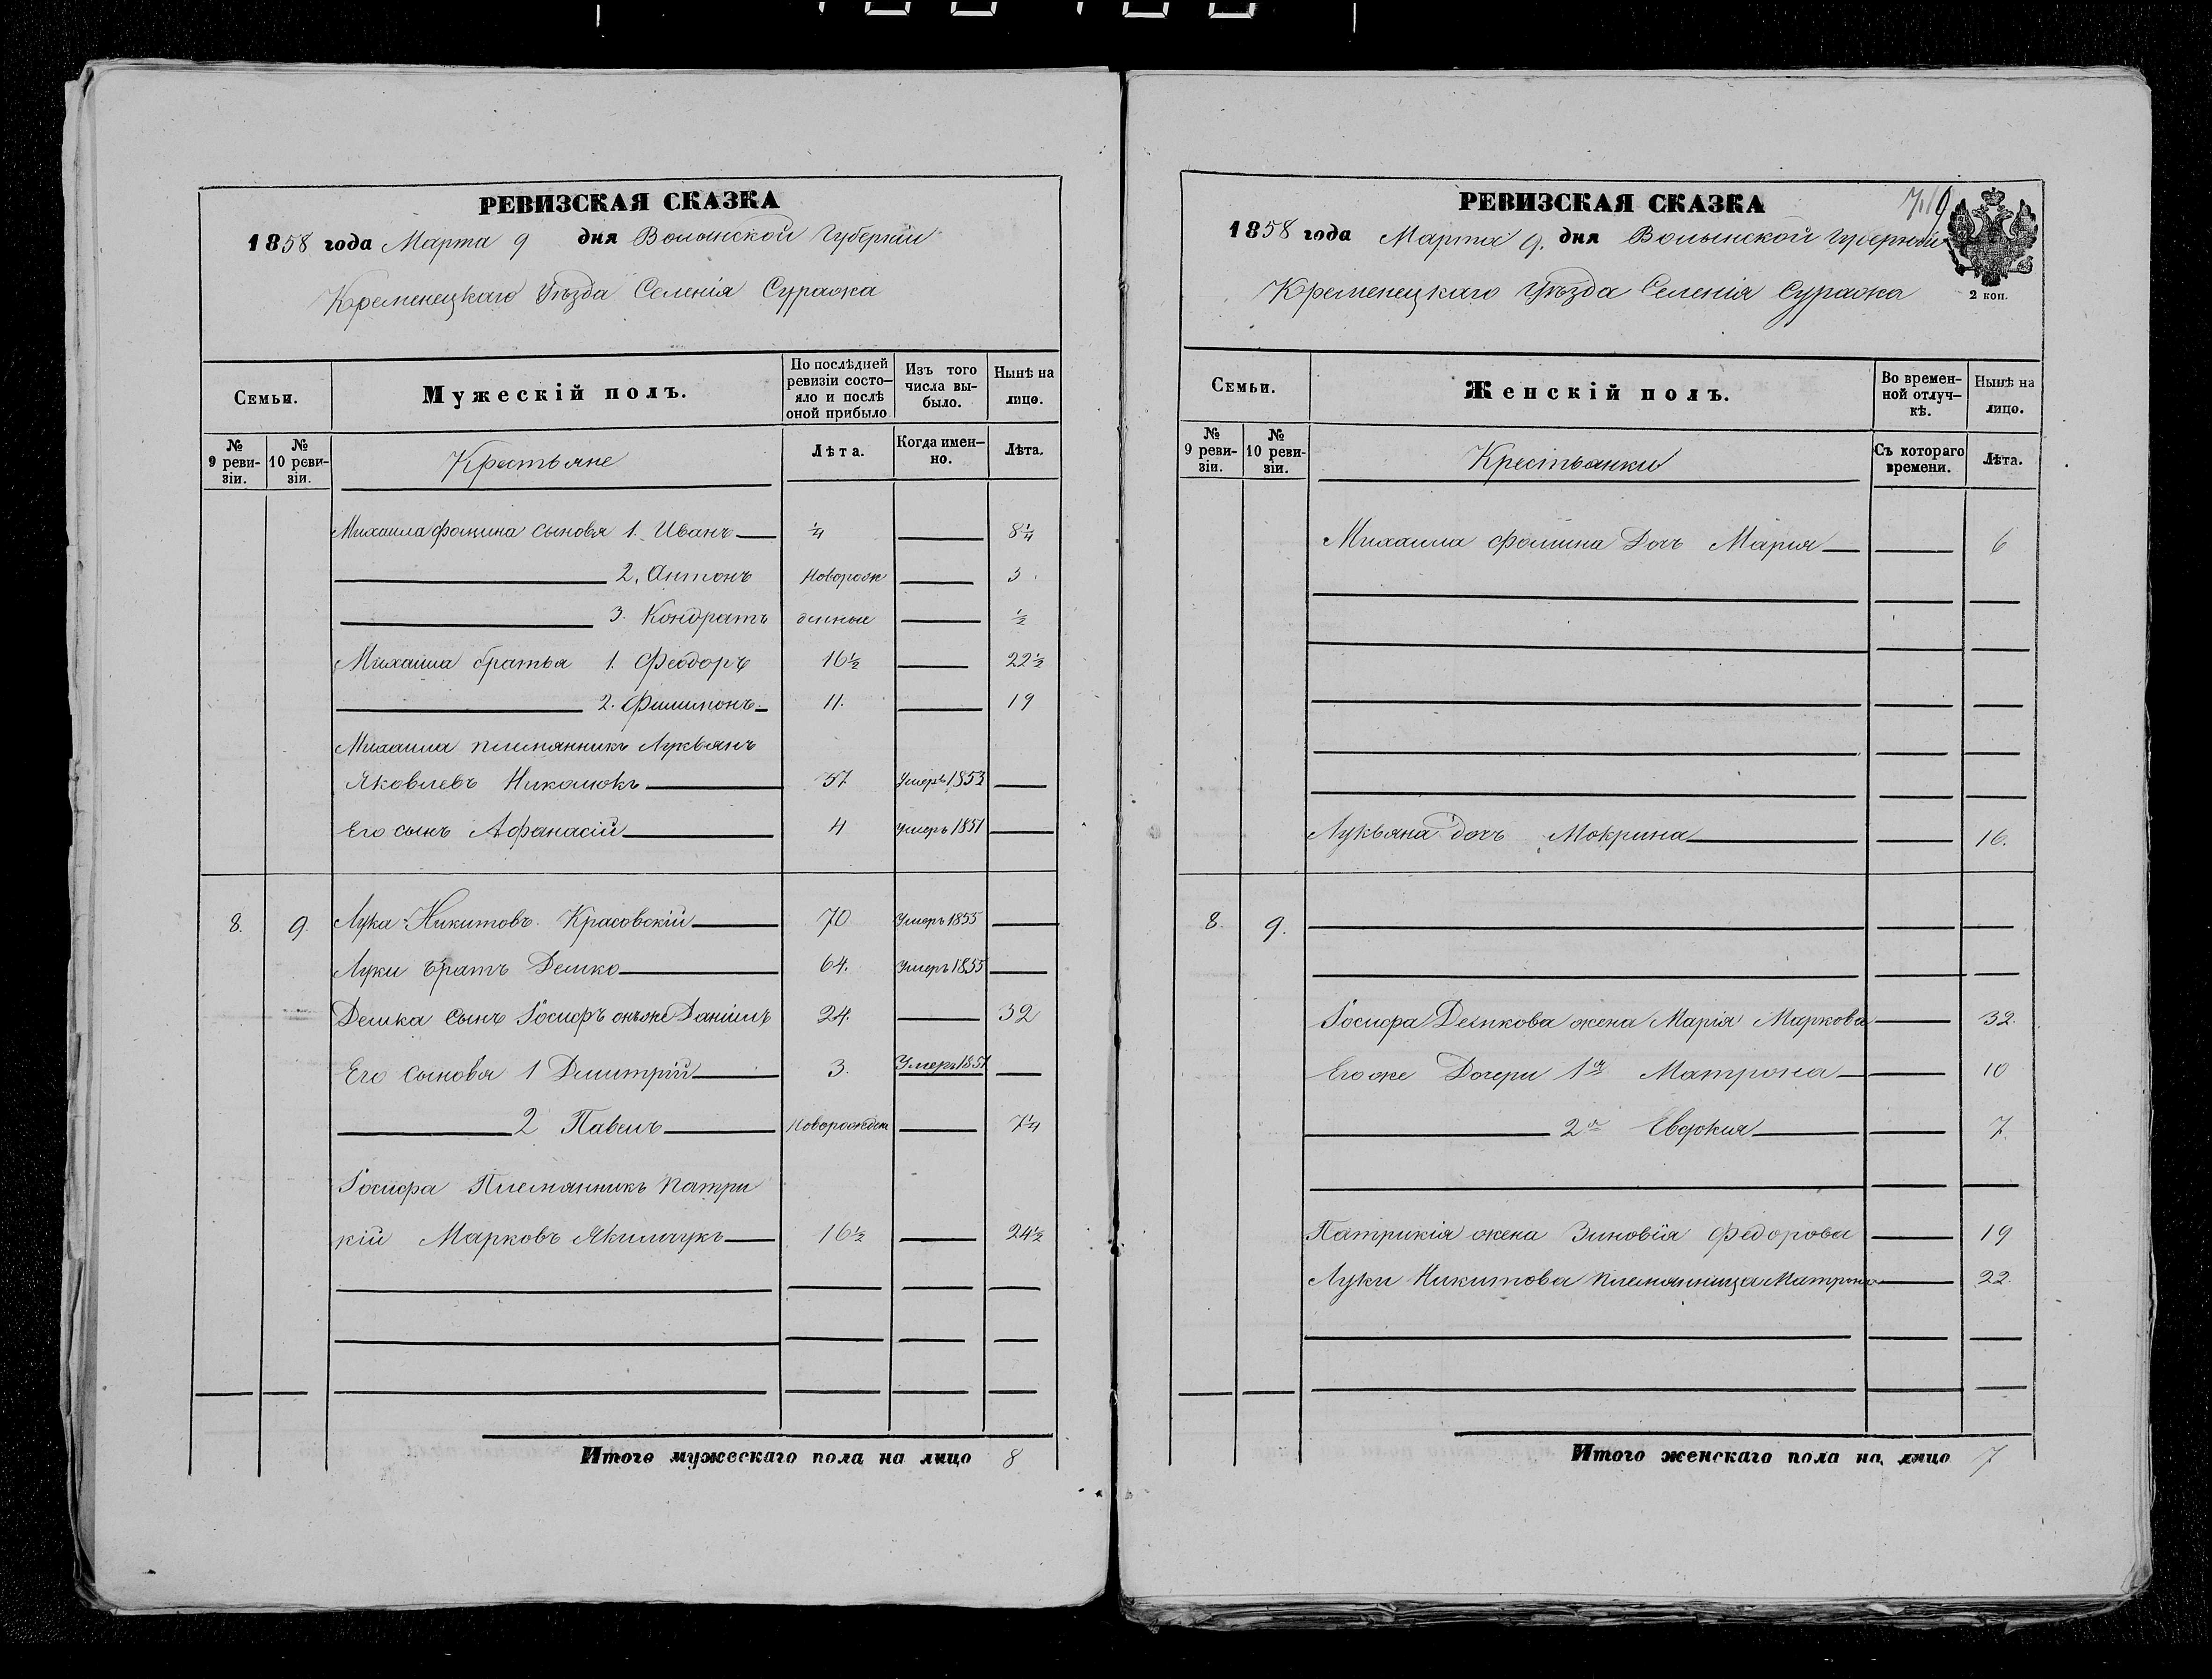 РЕВИЗСКАЯ СКАЗКА
1858 года Марта 9 дня Волынской Губерніи
Кременецкаго Уѣзда Селенія Суража
Семьи.
Мужескій полъ.
По послѣдней ревизіи состо-
яло и послѣ оной прибыло
Изъ того числа вы-
было.
Нынѣ на лицо.
№ 9 реви-
зіи.
№ 10 реви-
зіи.
Крестьяне
Лѣта.
Когда имен-
но.
Лѣта.
Михаила Фомина сыновя 1. Иванъ ¼ 8¼
2. Антонъ Новорож 3
3. Кондратъ денные ½
Михаила братья 1. Феодоръ 16½ 22½
2. Филимонъ 11. 19
Михаила племянникъ Лукьянъ
Яковлевъ Николюкъ 37 Умеръ 1853
Его сынъ Афанасій 4 Умеръ 1851
8. 9. Лука Никитовъ Красовскій 70 Умеръ 1855
Луки братъ Демко 64. Умеръ 1855
Демка сынъ Іосифъ онъже Даніилъ 24. 32
Его сыновя 1 Димитрій 3. Умеръ 1851
2 Павелъ Новорожден 7¼
Іосифа Племянникъ Патри
кій Марковъ Якимчукъ 16½ 24½
Итого мужескаго пола на лицо 8
РЕВИЗСКАЯ СКАЗКА
1858 года Марта 9. дня Волынской Губерніи
Кременецкаго Уѣзда Селенія Суража
2 коп.
Семьи.
Женскій полъ.
Во времен-
ной отлуч-
кѣ.
Нынѣ на лицо.
№ 9 реви-
зіи.
№ 10 реви-
зіи.
Крестьянки
Съ котораго времени.
Лѣта.
Михаила Фомина Дочъ Мария 6
Лукьяна дочъ Мокрина 16.
8. 9.
Іосифа Демкова жена Марія Маркова 32.
Егоже Дочери 1я Матрона 10
2я Евдокия 7.
Патрикія жена Зиновія Федорова 19
Луки Никитова племянница Матрона 22.
Итого женскаго пола на лицо 7